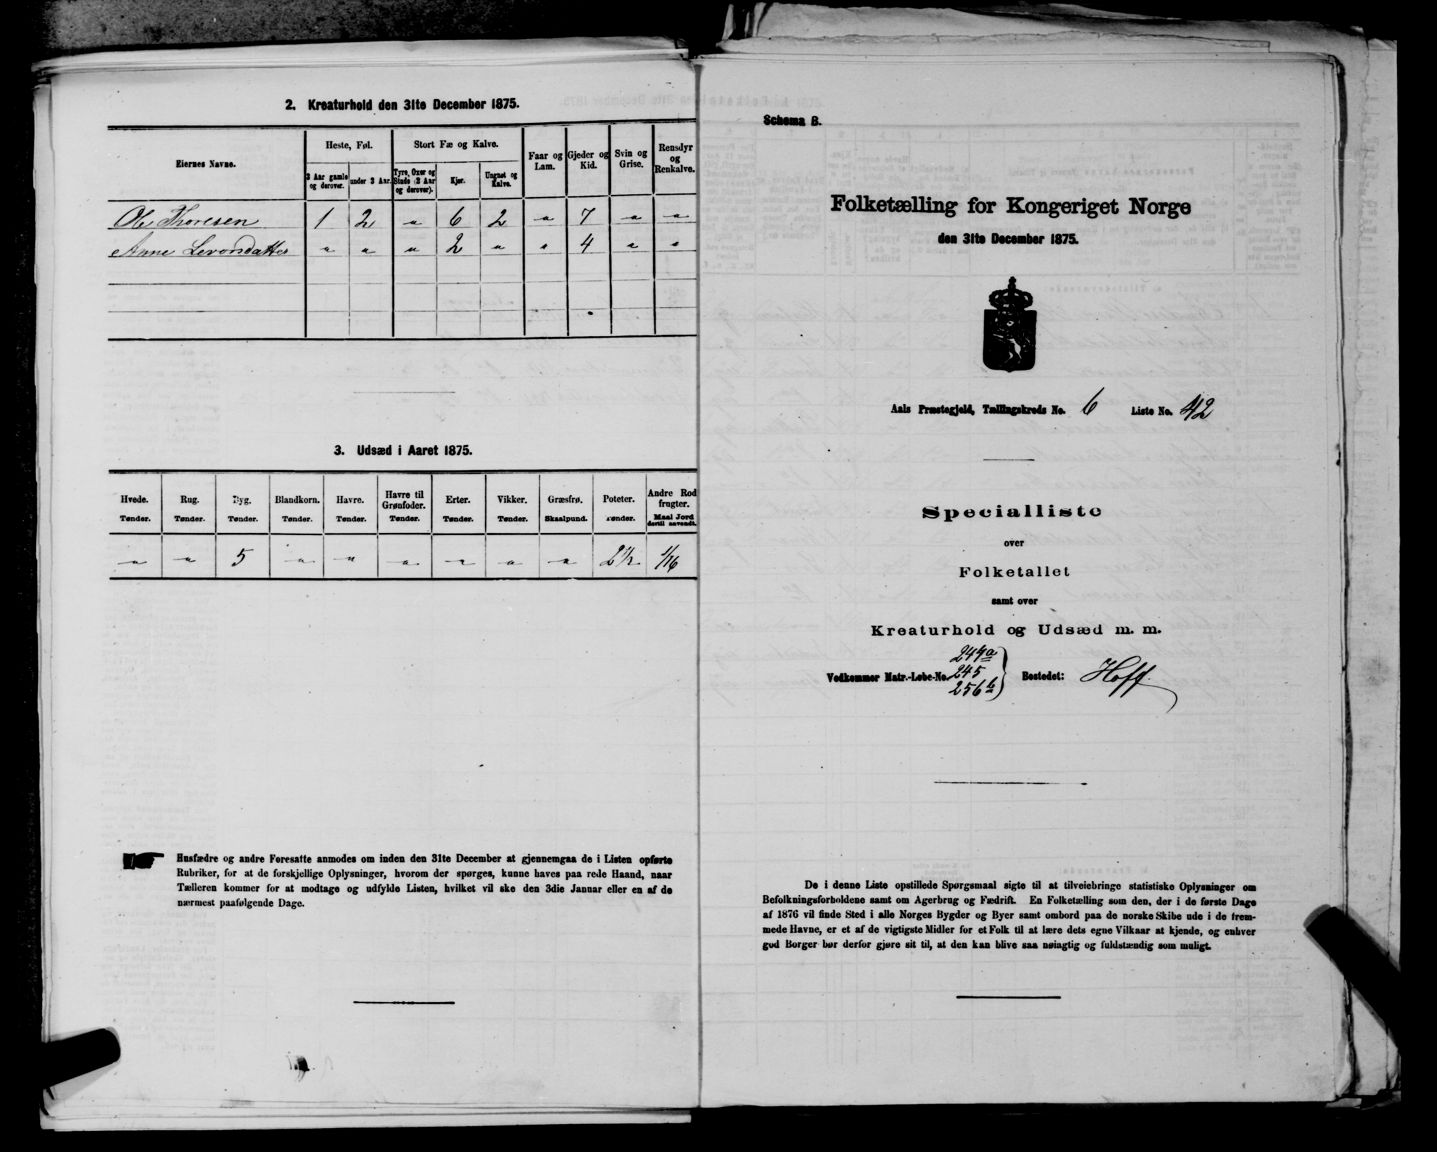 2. Kreaturhold den 31te December 1875.
Eiernes Navne.
Heste, Føl.
Stort Fæ og Kalve.
Faar og Lam.
Gjeder og Kid.
Svin og Grise.
Rensdyr og Renkalve.
3 Aar gamle og derover.
under 3 Aar.
Tyre, Oxer og Stude (2 Aar og derover).
Kjør.
Ungnøt og Kalve.
Ole Thoresen 1 2 " 6 2 " 7 " "
Anne Levorsdatter " " " 2 " " 4 " "
3. Udsæd i Aaret 1875.
Hvede. Rug. Byg. Blandkorn. Havre. Havre til Grønfoder. Erter. Vikker. Græsfrø. Poteter. Andre Rodfrugter.
Tønder. Tønder. Tønder. Tønder. Tønder. Tønder. Tønder. Tønder. Skaalpund. Tønder. Maal Jord dertil anvendt.
" " 5 " " " " " " 2½ 1/16
Husfædre og andre Foresatte anmodes om inden den 31te December at gjennemgaa de i Listen opførte
Rubriker, for at de forskjellige Oplysninger, hvorom der spørges, kunne haves paa rede Haand, naar
Tælleren kommer for at modtage og udfylde Listen, hvilket vil ske den 3die Januar eller en af de
nærmest paafølgende Dage.
Schema B.
Folketælling for Kongeriget Norge
den 31te December 1875.
Aals Præstegjeld, Tællingskreds No. 6 Liste No. 42
Specialliste
over
Folketallet
samt over
Kreaturhold og Udsæd m. m.
Vedkommer Matr.-Løbe-No. 244a 245 256b } Bostedet: Hoff.
De i denne Liste opstillede Spørgsmaal sigte til at tilveiebringe statistiske Oplysninger om
Befolkningsforholdene samt om Agerbrug og Fædrift. En Folketælling som den, der i de første Dage
af 1876 vil finde Sted i alle Norges Bygder og Byer samt ombord paa de norske Skibe ude i de frem-
mede Havne, er et af de vigtigste Midler for et Folk til at lære dets egne Vilkaar at kjende, og enhver
god Borger bør derfor gjøre sit til, at den kan blive saa nøiagtig og fuldstændig som muligt.